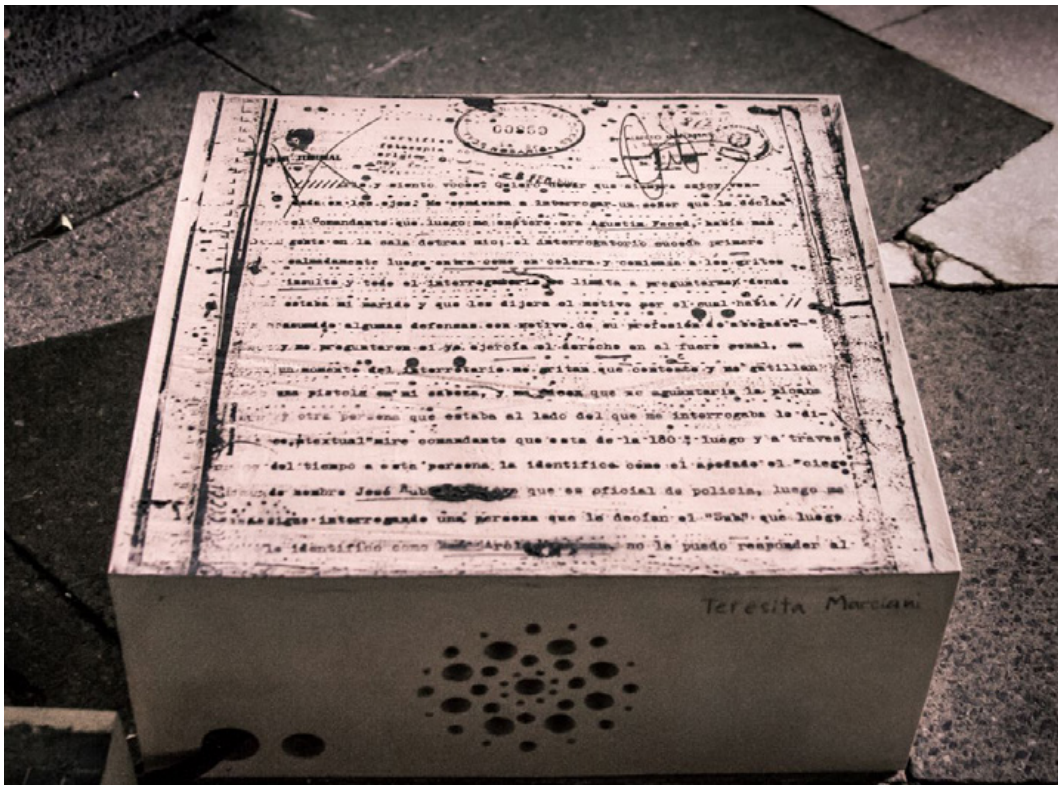 y siento voces? Quiero decir que siempre estoy ven-
dada en los ojos. Me comienza a interrogar un señor que le decían
el Comandante que luego me entere era Agustin Feced, había mas
gente en la sala detras mio; el interrogatorio sucede primero
calmadamente luego entra como en colera y comienzan a los gritos
insulto y todo el interrogatorio se limita a preguntarme donde
estaba mi marido y que les dijera el motivo por el cual había
asumido algunas defensas con motivo de su profesión de abogado
y me preguntaron si yo ejercía el derecho en el fuero penal, en
un momento del me gritan que conteste y me gatillan
una pistola en mi cabeza, y me dicen que no aguantaria la picana
y otra persona que estaba al lado del que me interrogaba le di-
textual "mire comandante que esta de la 180 luego y a traves
del tiempo a esta persona la identifico como el apodado el "ciego
de nombre José que es oficial de policia, luego me
interrogando una persona que le decían el "Sub" que luego
le identifico como no le puedo responder al
Teresita Marciani